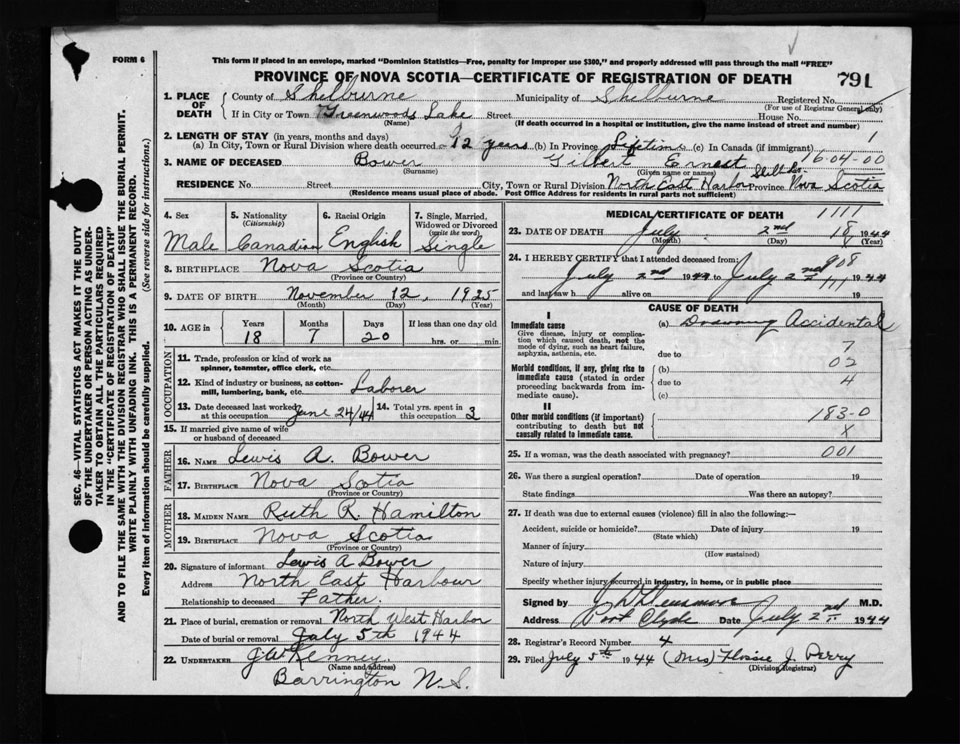 FORM 6
This form if placed in an envelope, marked "Dominion Statistics—Free, penalty for improper use $300," and properly addressed will pass through the mail "FREE"
PROVINCE OF NOVA SCOTIA—CERTIFICATE OF REGISTRATION OF DEATH 791
SEC. 46—VITAL STATISTICS ACT MAKES IT THE DUTY
OF THE UNDERTAKER OR PERSON ACTING AS UNDER-
TAKER TO OBTAIN ALL THE PARTICULARS REQUIRED
IN THE "CERTIFICATE OF REGISTRATION OF DEATH"
AND TO FILE THE SAME WITH THE DIVISION REGISTRAR WHO SHALL ISSUE THE BURIAL PERMIT.
WRITE PLAINLY WITH UNFADING INK. THIS IS A PERMANENT RECORD.
Every item of information should be carefully supplied. (See reverse side for instructions.)
1. PLACE OF DEATH
County of Shelburne Municipality of Shelburne Registered No.
(For use of Registrar General only)
If in City or Town Greenwoods Lake Street House No.
(Name) (If death occurred in a hospital or institution, give the name instead of street and number)
2. LENGTH OF STAY (in years, months and days) 1
(a) In City, Town or Rural Division where death occurred 12 years (b) In Province Lifetime (c) In Canada (if immigrant)
3. NAME OF DECEASED Bower Gilbert Ernest 16-04-00
(Surname) (Given name or names)
RESIDENCE No. Street City, Town or Rural Division North East Harbor Province Nova Scotia
(Residence means usual place of abode. Post Office Address for residents in rural parts not sufficient)
4. Sex
Male
5. Nationality
(Citizenship)
Canadian
6. Racial Origin
English
7. Single, Married,
Widowed or Divorced
(write the word)
Single
8. BIRTHPLACE Nova Scotia
(Province or Country)
9. DATE OF BIRTH November 12, 1925
(Month) (Day) (Year)
10. AGE in
Years Months Days If less than one day old
18 7 20 hrs. or min.
OCCUPATION
11. Trade, profession or kind of work as
spinner, teamster, office clerk, etc.
12. Kind of industry or business, as cotton-
mill, lumbering, bank, etc. Laborer
13. Date deceased last worked
at this occupation June 24/44
14. Total yrs. spent in
this occupation 3
15. If married give name of wife
or husband of deceased
FATHER
16. NAME Lewis A. Bower
17. BIRTHPLACE Nova Scotia
(Province or Country)
MOTHER
18. MAIDEN NAME Ruth R. Hamilton
19. BIRTHPLACE Nova Scotia
(Province or Country)
20. Signature of informant Lewis A Bower
Address North East Harbour
Relationship to deceased Father.
21. Place of burial, cremation or removal North West Harbor
Date of burial or removal July 5th 1944
22. UNDERTAKER J W Kenney.
(Name and address)
Barrington N.S.
MEDICAL CERTIFICATE OF DEATH 1111
23. DATE OF DEATH July 2nd 1944
(Month) (Day) (Year)
24. I HEREBY CERTIFY that I attended deceased from: 908
July 2nd 1944 to July 2nd 1944
and last saw h alive on 111 19
CAUSE OF DEATH
I
Immediate cause
Give disease, injury or complica-
tion which caused death, not the
mode of dying, such as heart failure,
asphyxia, asthenia, etc.
(a) Drowning Accidental
7
due to
Morbid conditions, if any, giving rise to
immediate cause (stated in order
proceeding backwards from im-
mediate cause).
(b) 02
due to 4
(c)
II
Other morbid conditions (if important)
contributing to death but not
causally related to immediate cause.
183-0
X
25. If a woman, was the death associated with pregnancy? 001
26. Was there a surgical operation? Date of operation 19
State findings Was there an autopsy?
27. If death was due to external causes (violence) fill in also the following:—
Accident, suicide or homicide? Date of injury 19
(State which)
Manner of injury
(How sustained)
Nature of injury
Specify whether injury occurred in industry, in home, or in public place
Signed by M.D.
Address Port Clyde Date July 2nd 1944
28. Registrar's Record Number 4
29. Filed July 5th 1944 (Mrs) Flossie J. Perry
(Division Registrar)